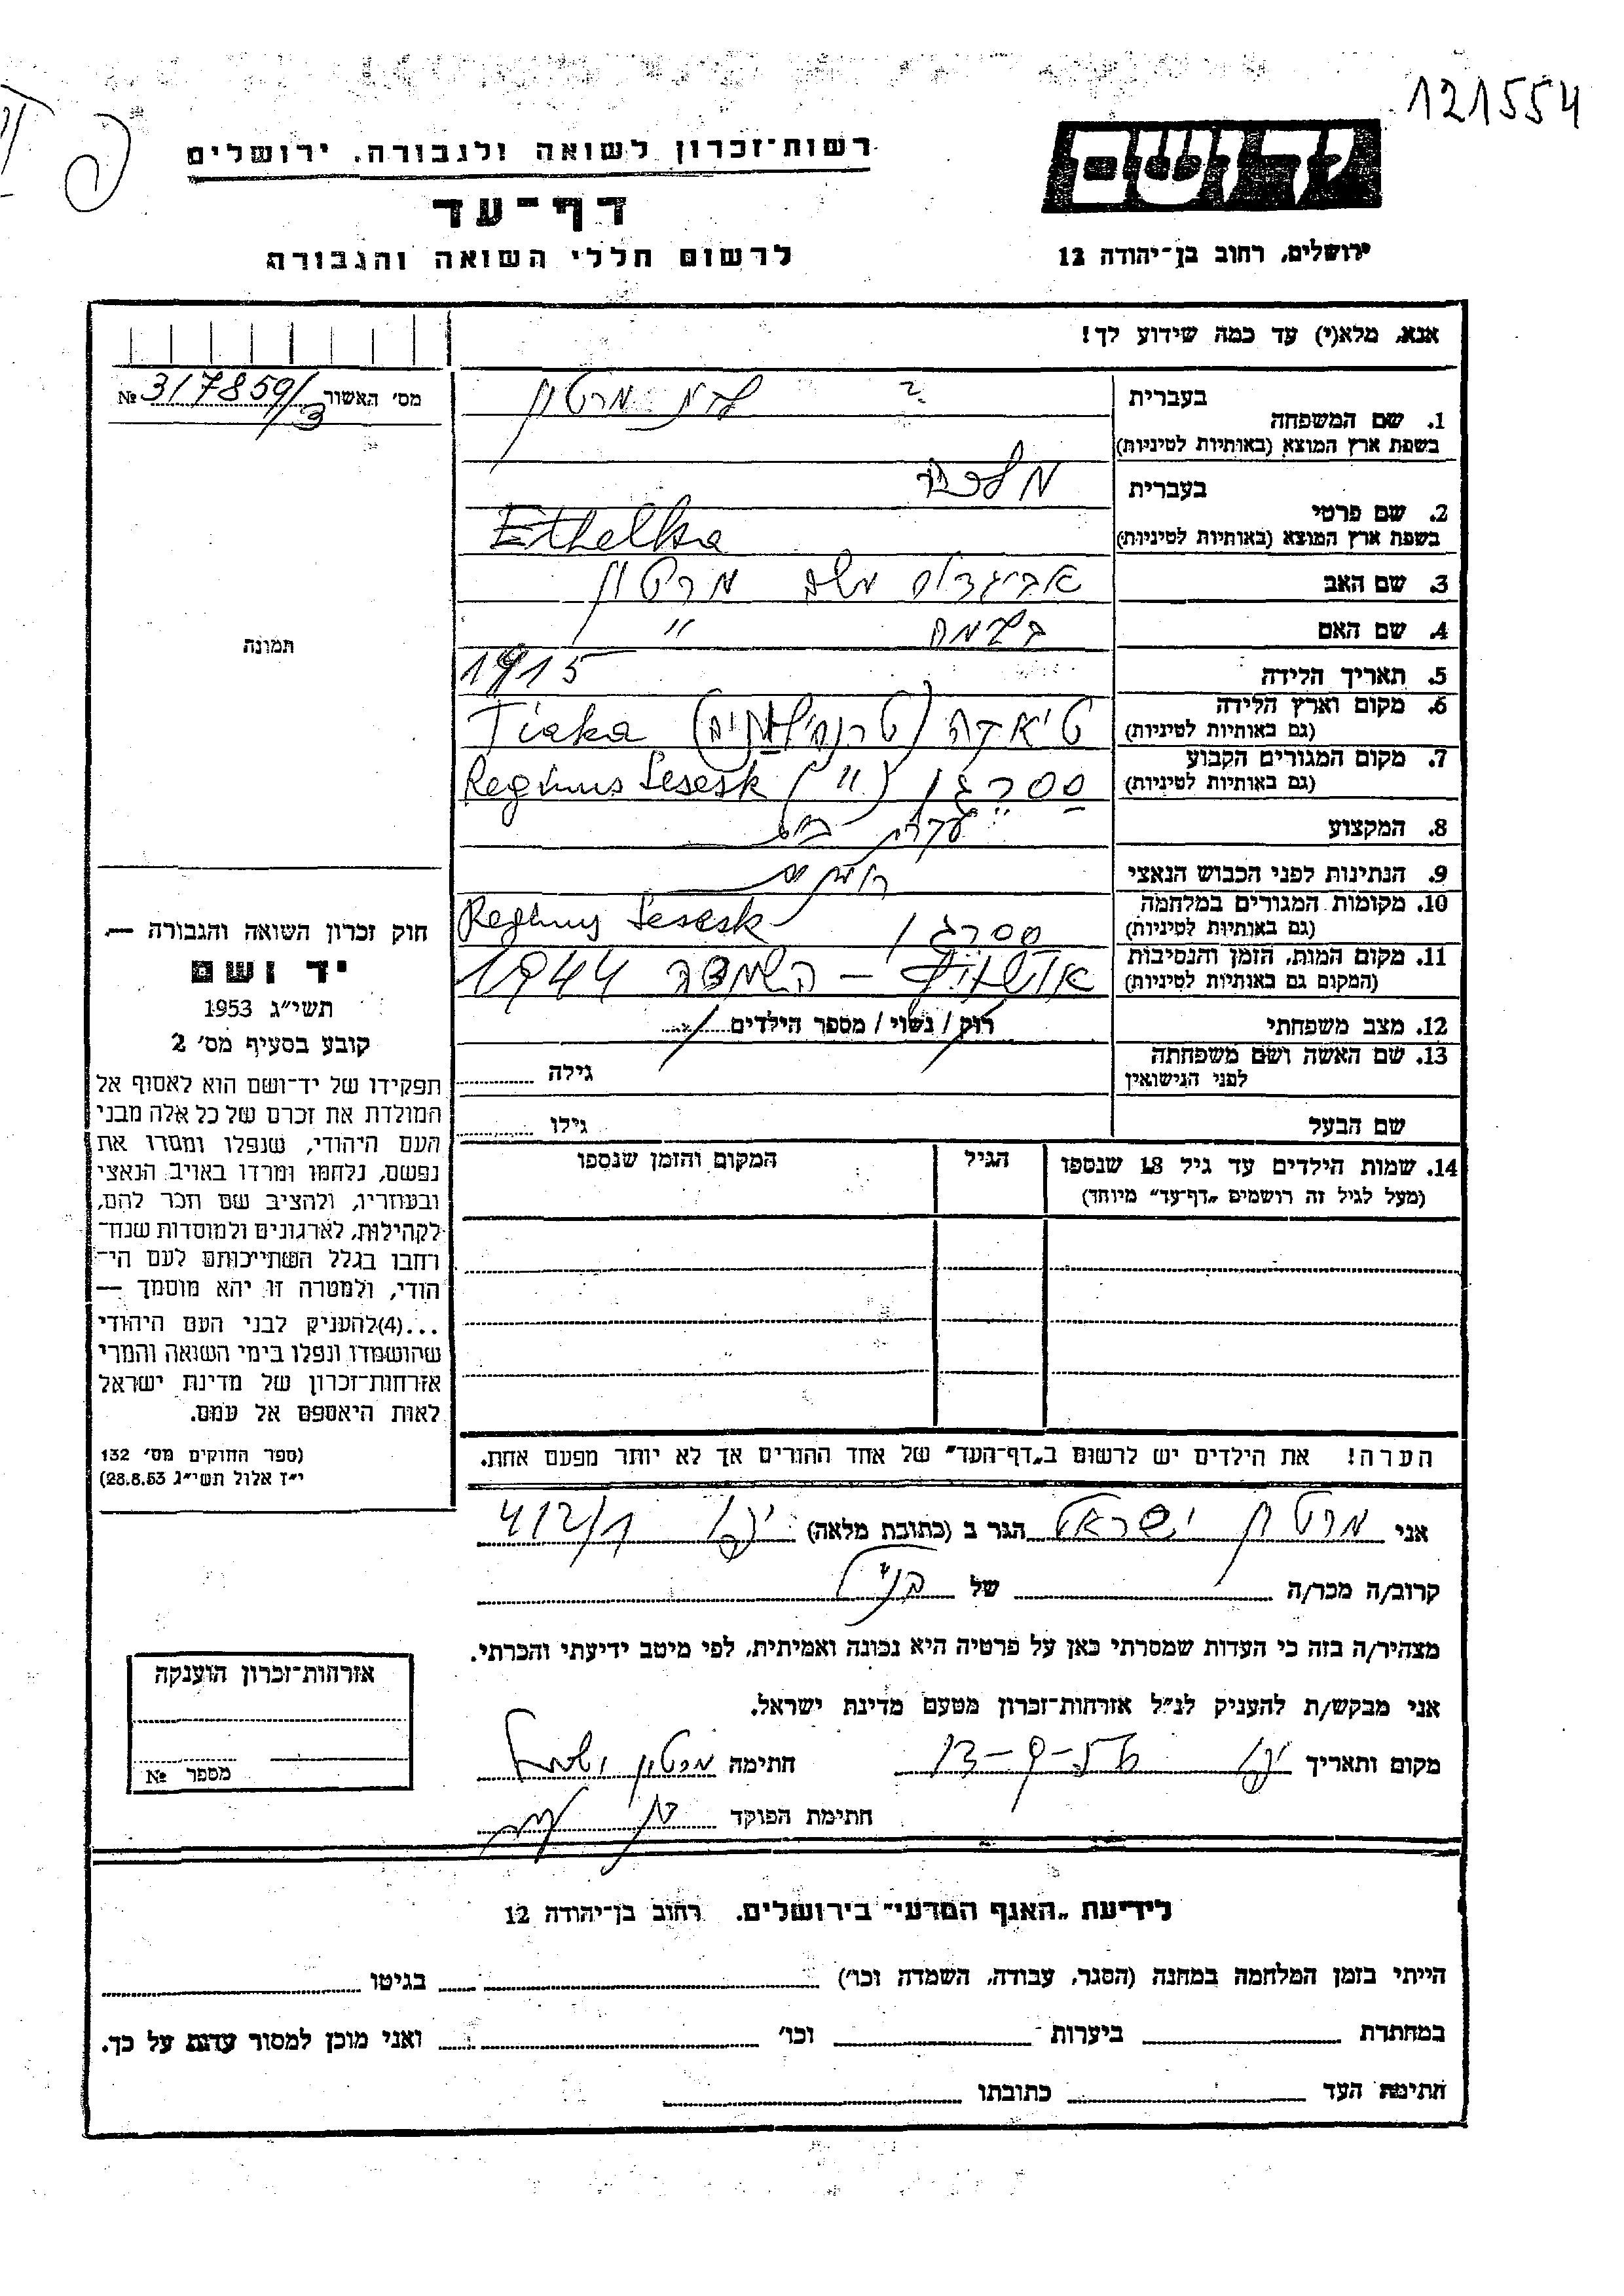 121554
יד ושם
רשות־זכרון לשואה ולגבורה, ירושלים
דף־עד
ירושלים, רחוב בן־יהודה 12
לרשום חללי השואה והגבורה
אנא, מלא(י) עד כמה שידוע לך!
מס׳ האשור 317859/3 №
בעברית
1. שם המשפחה
בשפת ארץ המוצא (באותיות לטיניות)
מרטון
בעברית
2. שם פרטי
בשפת ארץ המוצא (באותיות לטיניות)
Ethelka
3. שם האב
אביגדור משה מרטון
4. שם האם
"
5. תאריך הלידה
1915
6. מקום וארץ הלידה
(גם באותיות לטיניות)
Tiaka
7. מקום המגורים הקבוע
(גם באותיות לטיניות)
ססרגן (") Reghinus Sesesk
8. המקצוע
עקרת בית
9. הנתינות לפני הכבוש הנאצי
10. מקומות המגורים במלחמה
(גם באותיות לטיניות)
ססרגן Reghinus Sesesk
11. מקום המות, הזמן והנסיבות
(המקום גם באותיות לטיניות)
אושויץ – השמדה 1944
12. מצב משפחתי
רוק / נשוי / מספר הילדים
13. שם האשה ושם משפחתה
לפני הנישואין
גילה
שם הבעל
גילו
14. שמות הילדים עד גיל 18 שנספו
(מעל לגיל זה רושמים „דף־עד” מיוחד)
הגיל
המקום והזמן שנספו
תמונה
חוק זכרון השואה והגבורה —
יד ושם
תשי״ג 1953
קובע בסעיף מס׳ 2
תפקידו של יד־ושם הוא לאסוף אל
המולדת את זכרם של כל אלה מבני
העם היהודי, שנפלו ומסרו את
נפשם, נלחמו ומרדו באויב הנאצי
ובעוזריו, ולהציב שם וזכר להם,
לקהילות, לארגונים ולמוסדות שנח־
רבו בגלל השתייכותם לעם הי־
הודי, ולמטרה זו יהא מוסמך —
...(4)להעניק לבני העם היהודי
שהושמדו ונפלו בימי השואה והמרי
אזרחות־זכרון של מדינת ישראל
לאות היאספם אל עמם.
(ספר החוקים מס׳ 132
י״ז אלול תשי״ג 28.8.53)
הערה! את הילדים יש לרשום ב„דף־העד” של אחד ההורים אך לא יותר מפעם אחת.
אני מרטון ישראל הגר ב (כתובת מלאה) יבנה 412/1
קרוב/ה מכר/ה של הנ״ל
מצהיר/ה בזה כי העדות שמסרתי כאן על פרטיה היא נכונה ואמיתית, לפי מיטב ידיעתי והכרתי.
אני מבקש/ת להעניק לנ״ל אזרחות־זכרון מטעם מדינת ישראל.
מקום ותאריך יבנה 13-9-56 חתימה מרטון ישראל
חתימת הפוקד
אזרחות־זכרון הוענקה
מספר №
לידיעת „האגף המדעי” בירושלים, רחוב בן־יהודה 12
הייתי בזמן המלחמה במחנה (הסגר, עבודה, השמדה וכו׳) בגיטו
במחתרת ביערות וכו׳ ואני מוכן למסור עדות על כך.
חתימת העד כתובתו